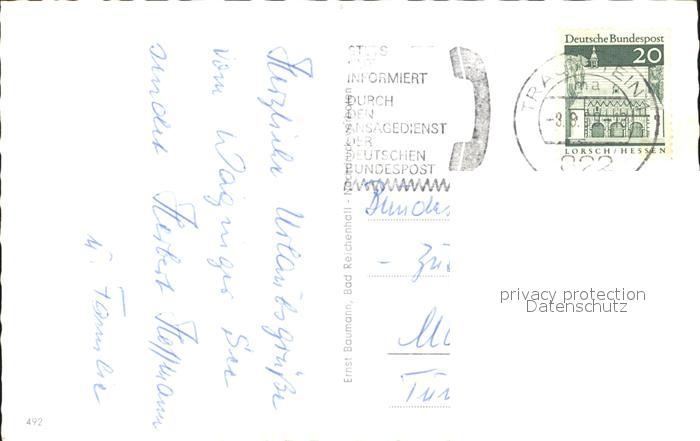 Herzliche Urlaubsgrüße
vom Waginger See
sendet Herbert Hoffmann
u. Familie
492
Ernst Baumann, Bad Reichenhall
STETS
INFORMIERT
DURCH
DEN
ANSAGEDIENST
DER
DEUTSCHEN
BUNDESPOST
Deutsche Bundespost
20
LORSCH/HESSEN
Bundes
- Zü
Mü
Tür
privacy protection
Datenschutz